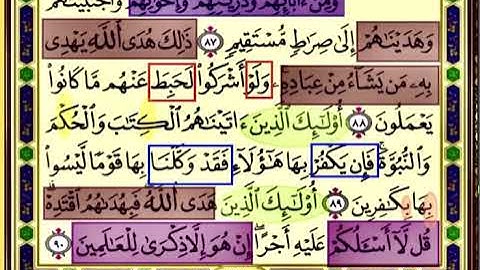 وَمِنْ ءَابَآئِهِمْ وَذُرِّيَّٰتِهِمْ وَإِخْوَٰنِهِمْ وَٱجْتَبَيْنَٰهُمْ
وَهَدَيْنَٰهُمْ إِلَىٰ صِرَٰطٍ مُّسْتَقِيمٍ ٨٧ ذَٰلِكَ هُدَى ٱللَّهِ يَهْدِى
بِهِۦ مَن يَشَآءُ مِنْ عِبَادِهِۦ وَلَوْ أَشْرَكُوا۟ لَحَبِطَ عَنْهُم مَّا كَانُوا۟
يَعْمَلُونَ ٨٨ أُو۟لَٰٓئِكَ ٱلَّذِينَ ءَاتَيْنَٰهُمُ ٱلْكِتَٰبَ وَٱلْحُكْمَ
وَٱلنُّبُوَّةَ فَإِن يَكْفُرْ بِهَا هَٰٓؤُلَآءِ فَقَدْ وَكَّلْنَا بِهَا قَوْمًا لَّيْسُوا۟
بِهَا بِكَٰفِرِينَ ٨٩ أُو۟لَٰٓئِكَ ٱلَّذِينَ هَدَى ٱللَّهُ فَبِهُدَىٰهُمُ ٱقْتَدِهْ
قُل لَّآ أَسْـَٔلُكُمْ عَلَيْهِ أَجْرًا إِنْ هُوَ إِلَّا ذِكْرَىٰ لِلْعَٰلَمِينَ ٩٠